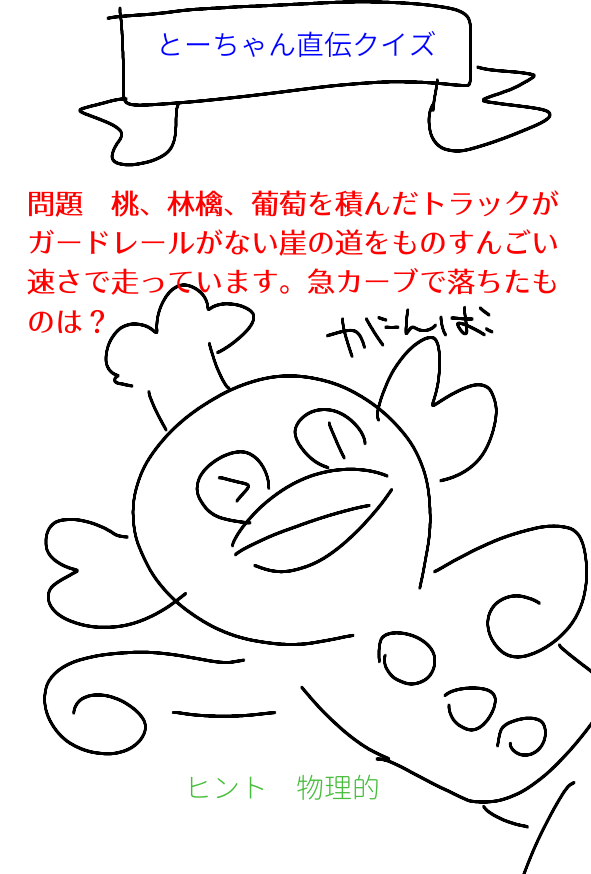 とーちゃん直伝クイズ
問題　桃、林檎、葡萄を積んだトラックが
ガードレールがない崖の道をものすんごい
速さで走っています。急カーブで落ちたも
のは？
かにんぱ:
ヒント　物理的